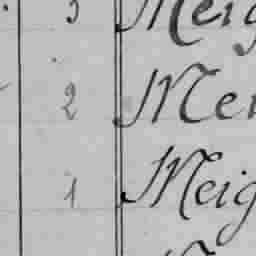 3 Meig
2 Mei
1 Meig